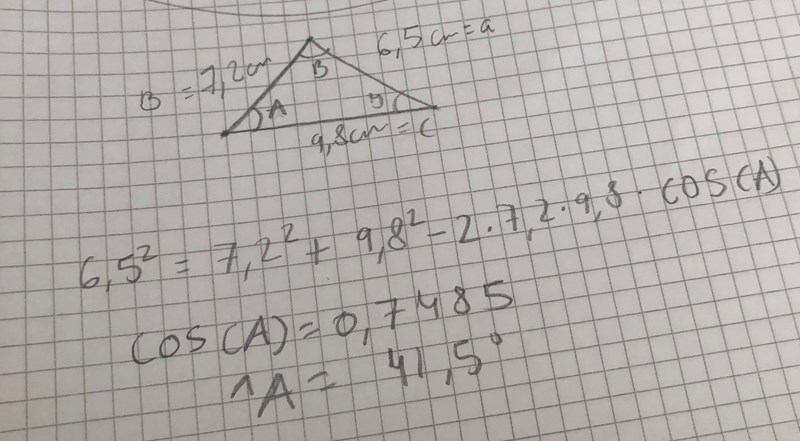 B = 7,2cm
6,5cm=a
B
A
y
9,8cm=C
6,5² = 7,2² + 9,8² - 2·7,2·9,8· COS(A)
COS(A)=0,7485
^A= 41,5°